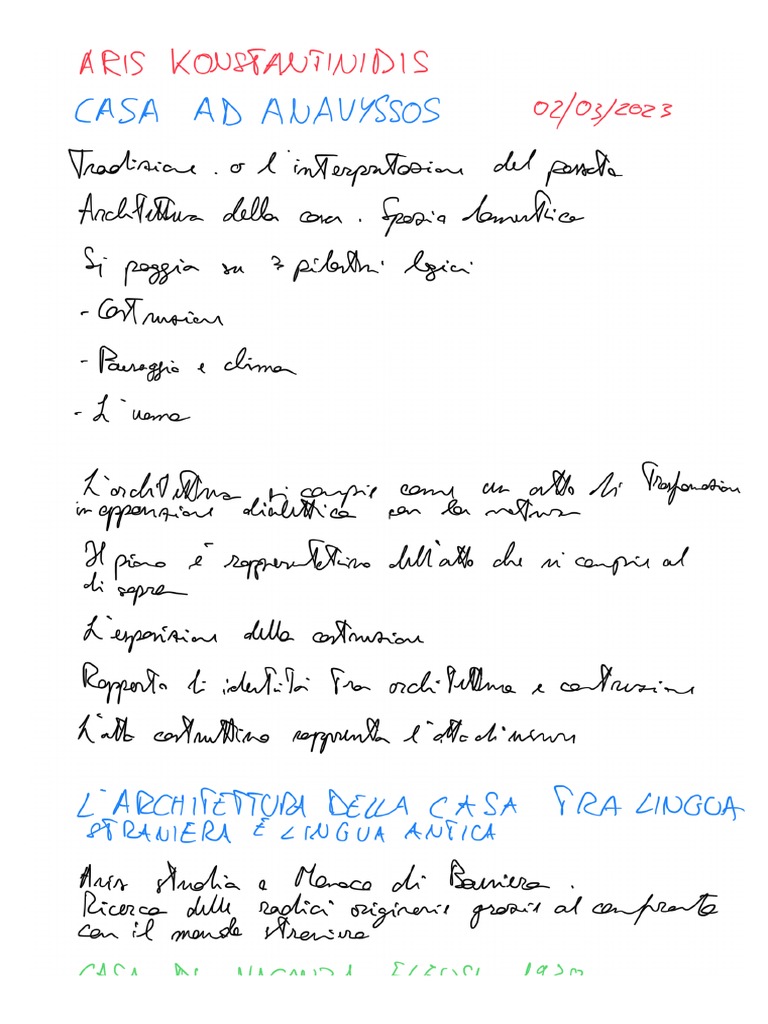 ARIS KONSTANTINIDIS
CASA AD ANAVYSSOS 02/03/2023
Tradizione . o l'interpretazione del passato
Architettura della casa . Spazio domestico
Si poggia su 3 pilastri logici
- Costruzione
- Paesaggio e clima
- L'uomo
L'architettura si compie come un atto di Trasformazione
in opposizione dialettica con la natura
Il piano è rappresentativo dell'atto che si compie al
di sopra
L'esposizione della costruzione
Rapporto di identità tra architettura e costruzione
L'atto costruttivo rappresenta l'atto di
L'ARCHITETTURA DELLA CASA TRA LINGUA
STRANIERA E LINGUA ANTICA
Aris studia a Monaco di Baviera .
Ricerca delle radici originarie grazie al confronto
con il mondo straniero
CASA DI VACANZA ELEUSI 1938